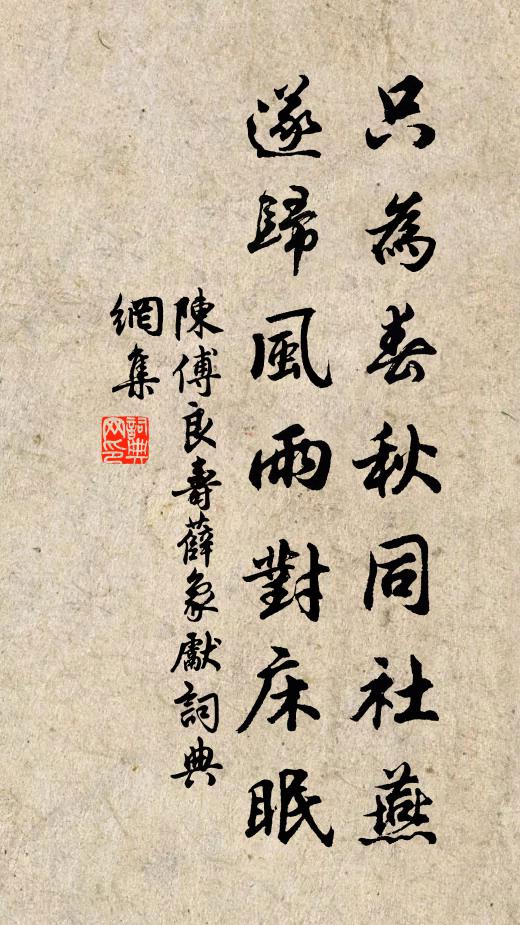 只為春秋同社燕
遂歸風雨對床眠
陳傅良壽薛象獻詞典
網集
詞典
网印